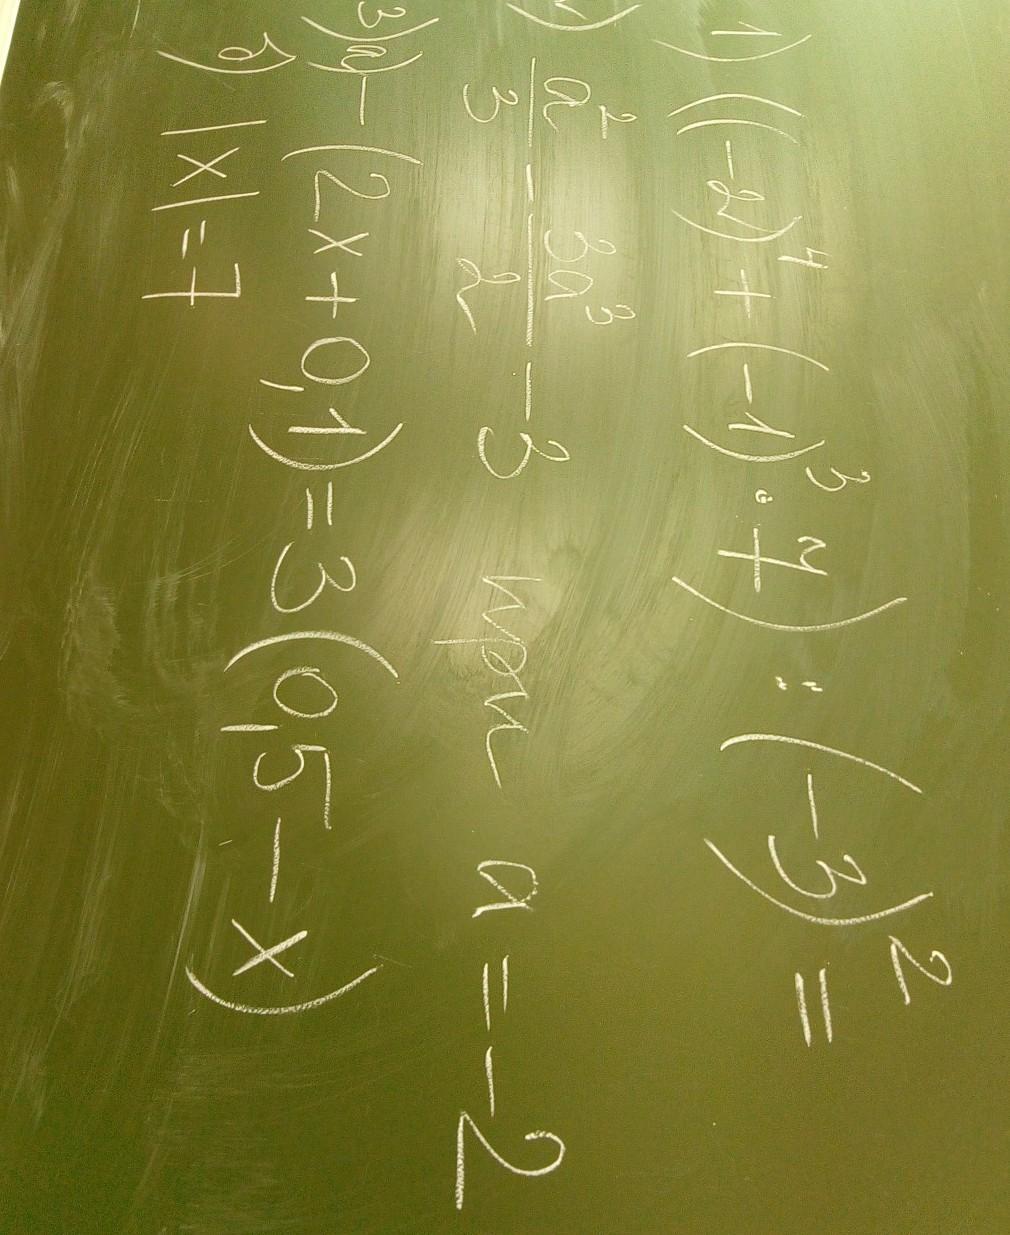 1) ((-2)⁴ + (-1)³ · 7) : (-3)² =
2) a²/3 - 3a³/2 - 3 при a = -2
3) а) - (2x + 0,1) = 3(0,5 - x)
б) |x| = 7